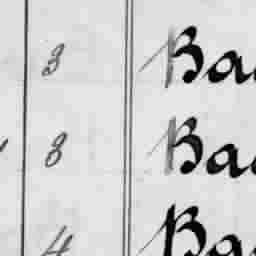 3 Ba
8 Ba
4 Ba